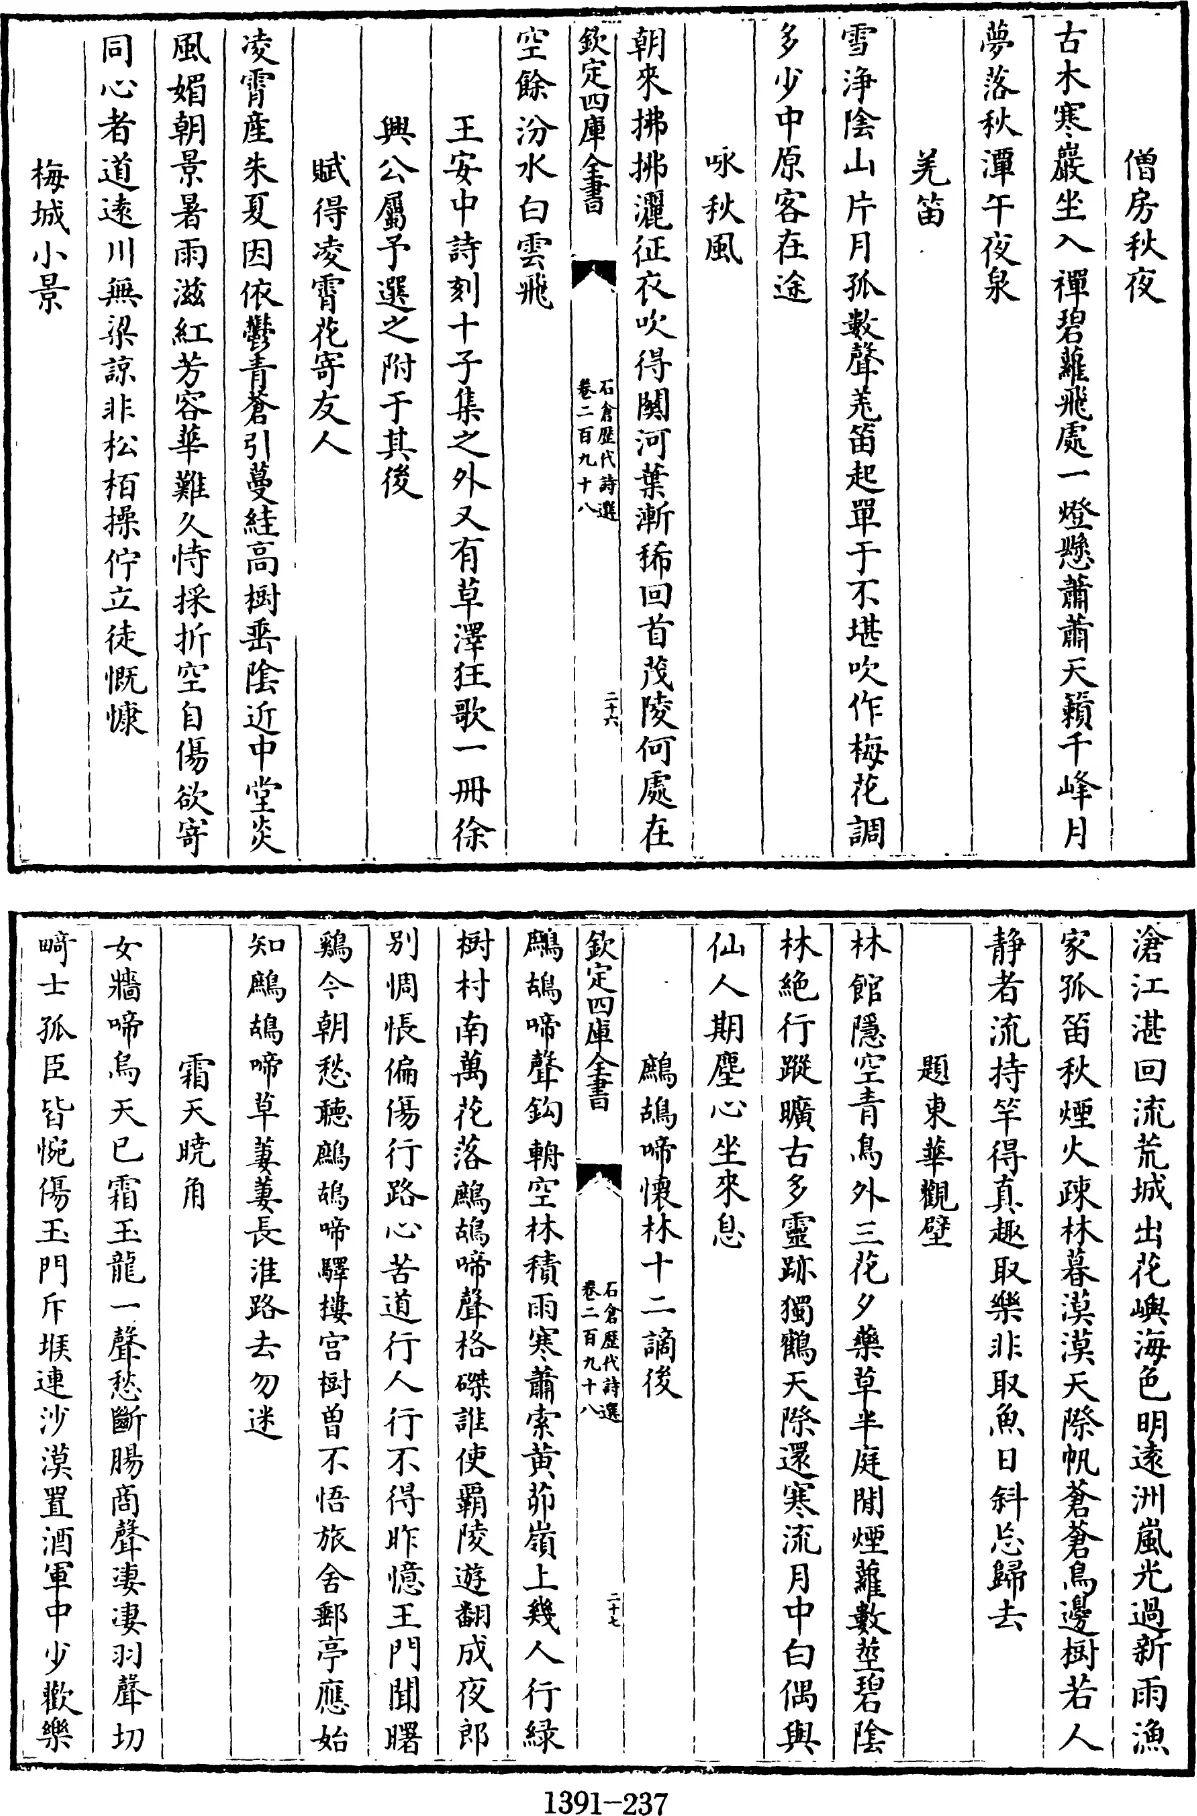 僧房秋夜
古木寒巖坐入禪碧蘿飛處一燈懸蕭蕭天籟千峰月
夢落秋潭午夜泉
羌笛
雪浄陰山片月孤數聲羌笛起單于不堪吹作梅花調
多少中原客在途
咏秋風
朝來拂拂灑征衣吹得關河葉漸稀回首茂陵何處在
欽定四庫全書
石倉歷代詩選
卷二百九十八
二十六
空餘汾水白雲飛
王安中詩刻十子集之外又有草澤狂歌一冊徐
興公屬予選之附于其後
賦得凌霄花寄友人
凌霄産朱夏因依鬱青蒼引蔓絓高樹垂陰近中堂炎
風媚朝景暑雨滋紅芳容華難久恃採折空自傷欲寄
同心者道遠川無梁諒非松栢操佇立徒慨慷
梅城小景
滄江湛回流荒城出花嶼海色明遠洲嵐光過新雨漁
家孤笛秋煙火疎林暮漠漠天際帆蒼蒼鳥邊樹若人
静者流持竿得真趣取樂非取魚日斜忘歸去
題東華觀壁
林館隱空青鳥外三花夕藥草半庭閒煙蘿數塟碧陰
林絶行蹤曠古多靈跡獨鶴天際還寒流月中白偶與
仙人期塵心坐來息
鷓鴣啼懷林十二謫後
欽定四庫全書
石倉歷代詩選
卷二百九十八
二十七
鷓鴣啼聲鈎輈空林積雨寒蕭索黄茆嶺上幾人行緑
樹村南萬花落鷓鴣啼聲格磔誰使覇陵遊翻成夜郎
别惆悵偏傷行路心苦道行人行不得昨憶王門聞曙
鷄今朝愁聽鷓鴣啼驛樓宫樹曽不悟旅舍郵亭應始
知鷓鴣啼草萋萋長淮路去勿迷
霜天曉角
女牆啼烏天已霜玉龍一聲愁斷腸商聲凄凄羽聲切
畸士孤臣皆惋傷玉門斥堠連沙漠置酒軍中少歡樂
1391-237